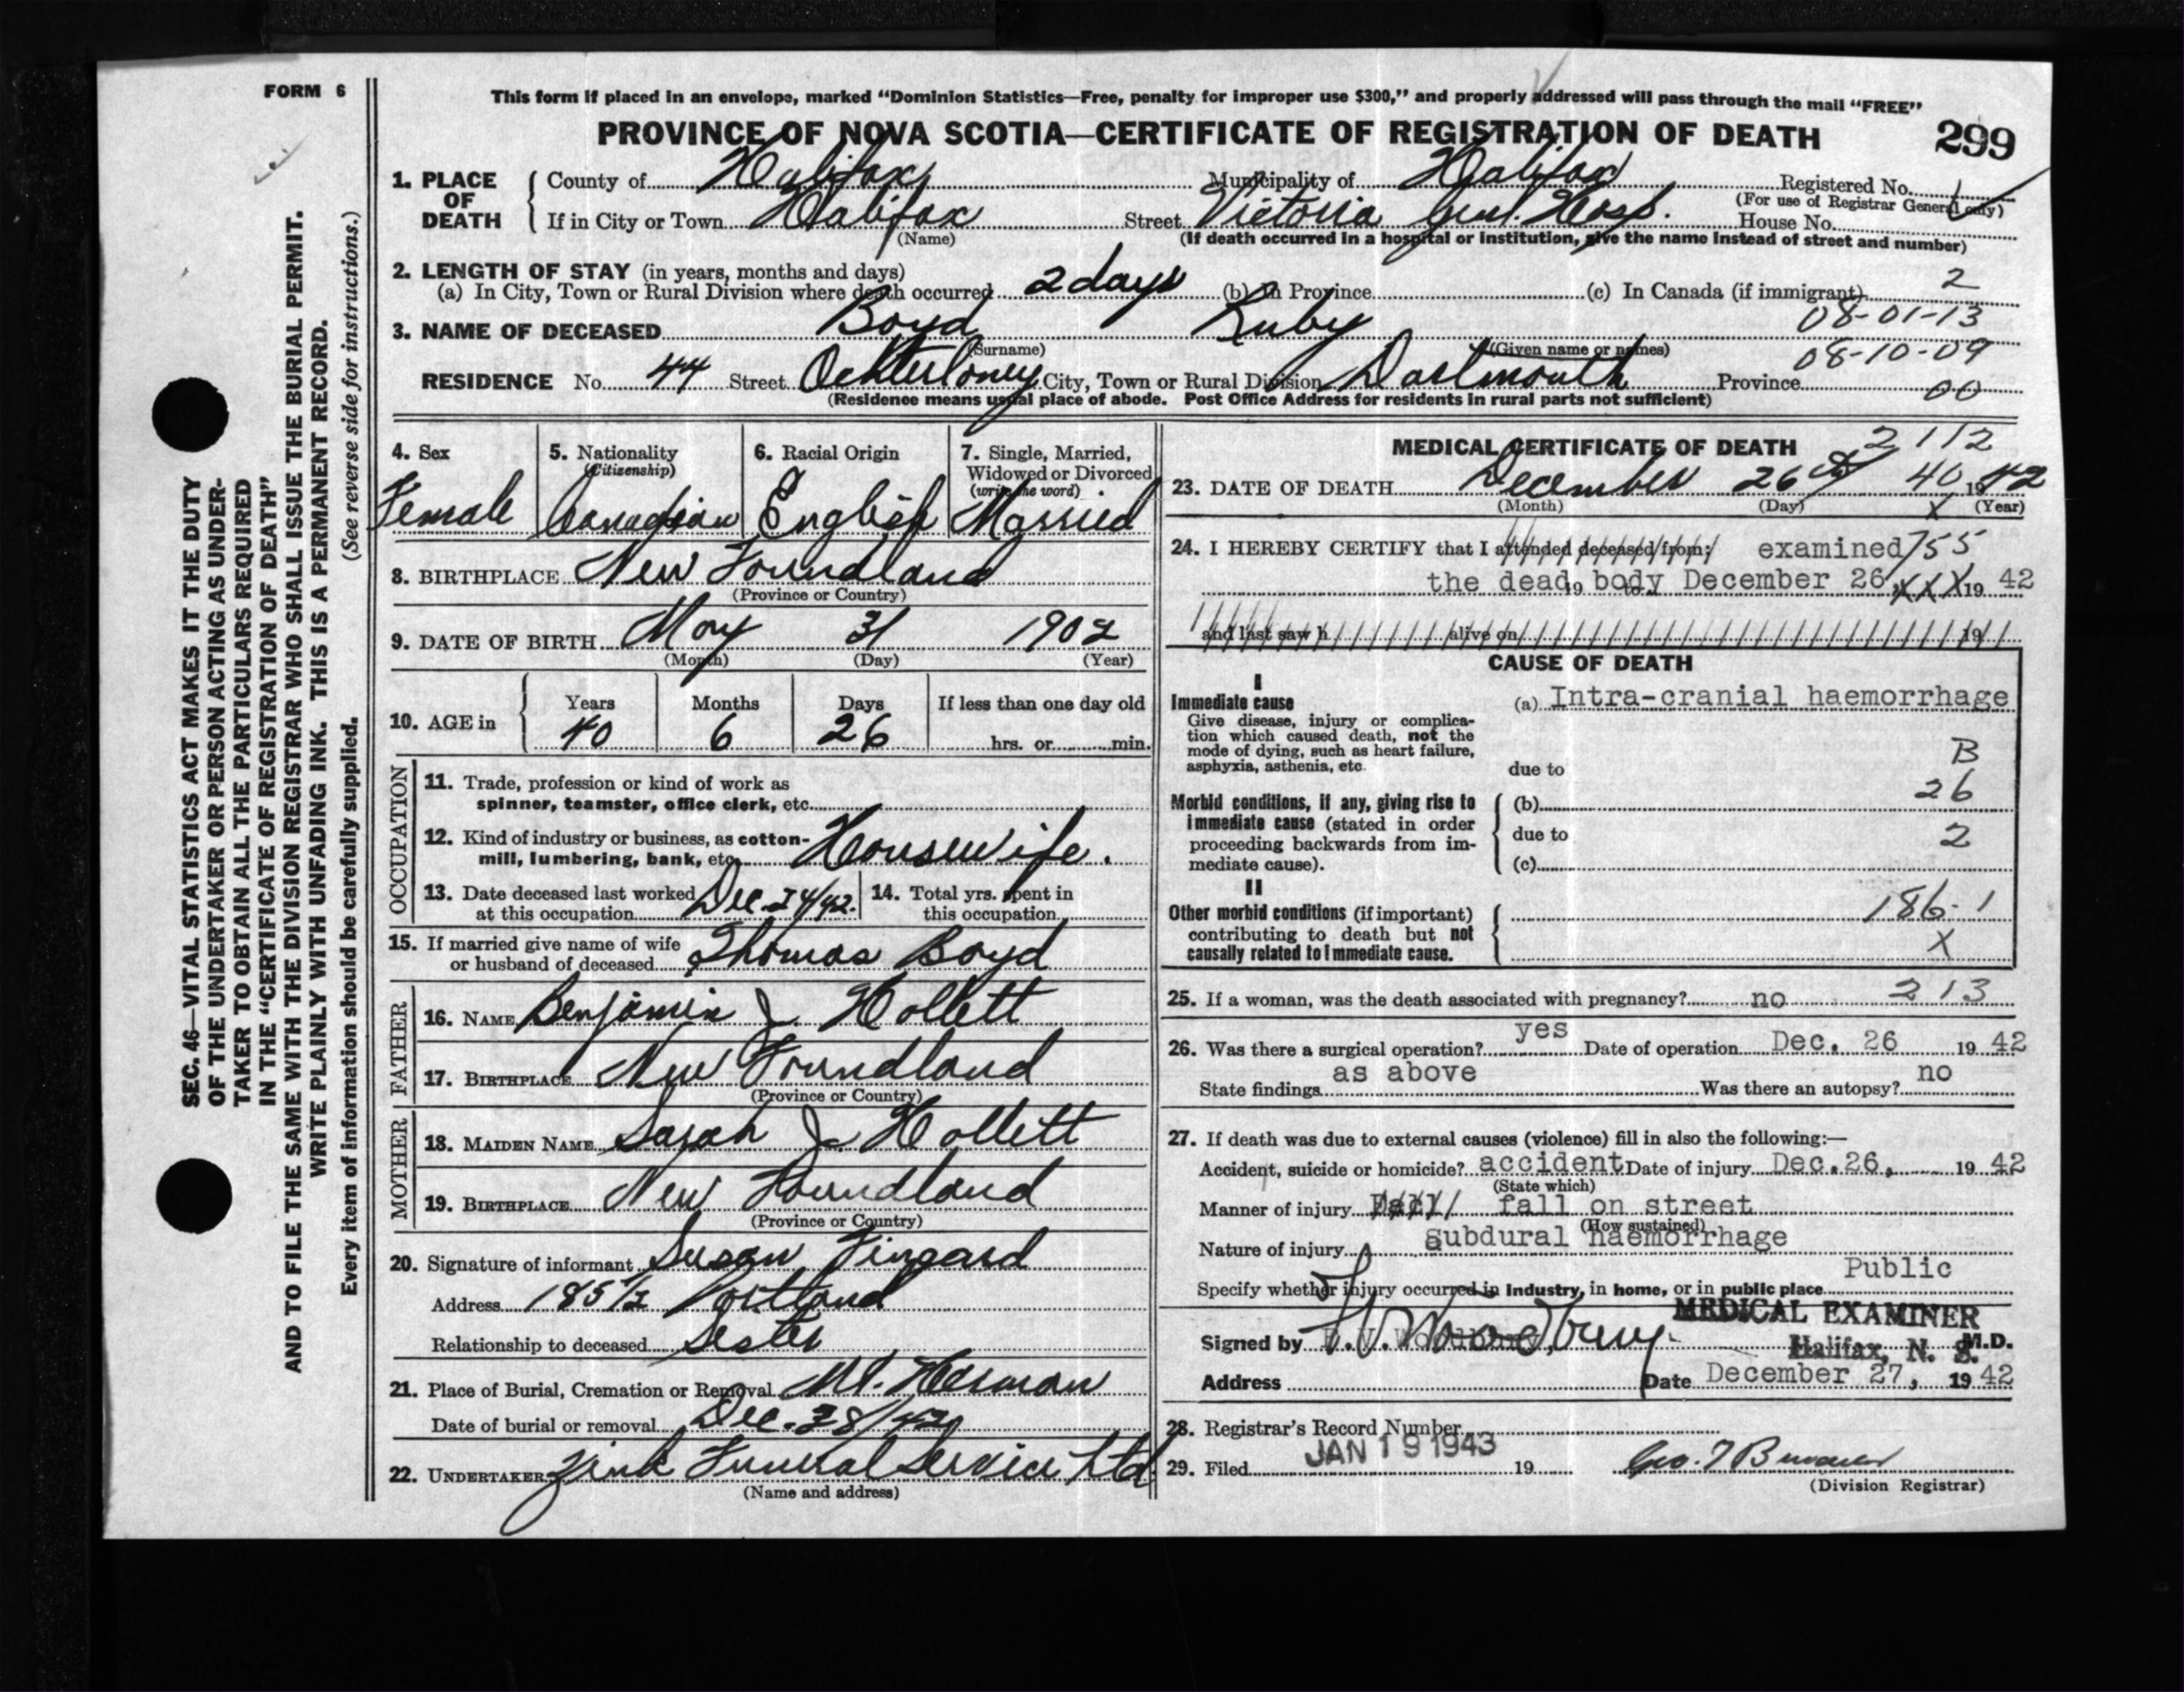 FORM 6
This form if placed in an envelope, marked "Dominion Statistics—Free, penalty for improper use $300," and properly addressed will pass through the mail "FREE"
PROVINCE OF NOVA SCOTIA—CERTIFICATE OF REGISTRATION OF DEATH 299
1. PLACE OF DEATH
County of Halifax Municipality of Halifax Registered No.
(For use of Registrar General only)
If in City or Town Halifax Street Victoria Genl. Hosp. House No.
(Name) (If death occurred in a hospital or institution, give the name instead of street and number)
2. LENGTH OF STAY (in years, months and days)
(a) In City, Town or Rural Division where death occurred 2 days (b) In Province (c) In Canada (if immigrant) 2
08-01-13
3. NAME OF DECEASED Boyd Ruby
(Surname) (Given name or names) 08-10-09
RESIDENCE No. 44 Street Ochterloney City, Town or Rural Division Dartmouth Province 00
(Residence means usual place of abode. Post Office Address for residents in rural parts not sufficient)
4. Sex Female
5. Nationality (Citizenship) Canadian
6. Racial Origin English
7. Single, Married, Widowed or Divorced (write the word) Married
8. BIRTHPLACE New Foundland
(Province or Country)
9. DATE OF BIRTH May 31 1902
(Month) (Day) (Year)
10. AGE in Years Months Days If less than one day old
40 6 26 hrs. or min.
OCCUPATION
11. Trade, profession or kind of work as
spinner, teamster, office clerk, etc.
12. Kind of industry or business, as cotton-
mill, lumbering, bank, etc. Housewife.
13. Date deceased last worked at this occupation Dec. 24/42.
14. Total yrs. spent in this occupation
15. If married give name of wife
or husband of deceased Thomas Boyd
FATHER
16. NAME Benjamin J. Hollett
17. BIRTHPLACE New Foundland
(Province or Country)
MOTHER
18. MAIDEN NAME Sarah J. Hollett
19. BIRTHPLACE New Foundland
(Province or Country)
20. Signature of informant Susan Fingard
Address 185 1/2 Portland
Relationship to deceased Sister
21. Place of Burial, Cremation or Removal Mt. Herman
Date of burial or removal Dec. 28/42
22. UNDERTAKER Zink Funeral Service Ltd.
(Name and address)
MEDICAL CERTIFICATE OF DEATH 2112
23. DATE OF DEATH December 26 40 1942
(Month) (Day) X (Year)
24. I HEREBY CERTIFY that I attended deceased from: examined 755
the dead 19 body to December 26, XXX 19 42
and last saw h alive on 19
CAUSE OF DEATH
I
Immediate cause (a) Intra-cranial haemorrhage
Give disease, injury or complica-
tion which caused death, not the
mode of dying, such as heart failure,
asphyxia, asthenia, etc. due to B
Morbid conditions, if any, giving rise to (b) 26
immediate cause (stated in order due to 2
proceeding backwards from im-
mediate cause). (c)
II
Other morbid conditions (if important) 186-1
contributing to death but not X
causally related to immediate cause.
25. If a woman, was the death associated with pregnancy? no 213
26. Was there a surgical operation? yes Date of operation Dec. 26 19 42
State findings as above Was there an autopsy? no
27. If death was due to external causes (violence) fill in also the following:—
Accident, suicide or homicide? accident Date of injury Dec. 26, 19 42
(State which)
Manner of injury fall on street
(How sustained)
Nature of injury Subdural haemorrhage
Specify whether injury occurred in industry, in home, or in public place Public
MEDICAL EXAMINER
Signed by Woodbury Halifax, N. S. M.D.
Address Date December 27, 19 42
28. Registrar's Record Number
29. Filed JAN 19 1943 19
(Division Registrar)
SEC. 46—VITAL STATISTICS ACT MAKES IT THE DUTY
OF THE UNDERTAKER OR PERSON ACTING AS UNDER-
TAKER TO OBTAIN ALL THE PARTICULARS REQUIRED
IN THE "CERTIFICATE OF REGISTRATION OF DEATH"
AND TO FILE THE SAME WITH THE DIVISION REGISTRAR WHO SHALL ISSUE THE BURIAL PERMIT.
WRITE PLAINLY WITH UNFADING INK. THIS IS A PERMANENT RECORD.
Every item of information should be carefully supplied. (See reverse side for instructions.)